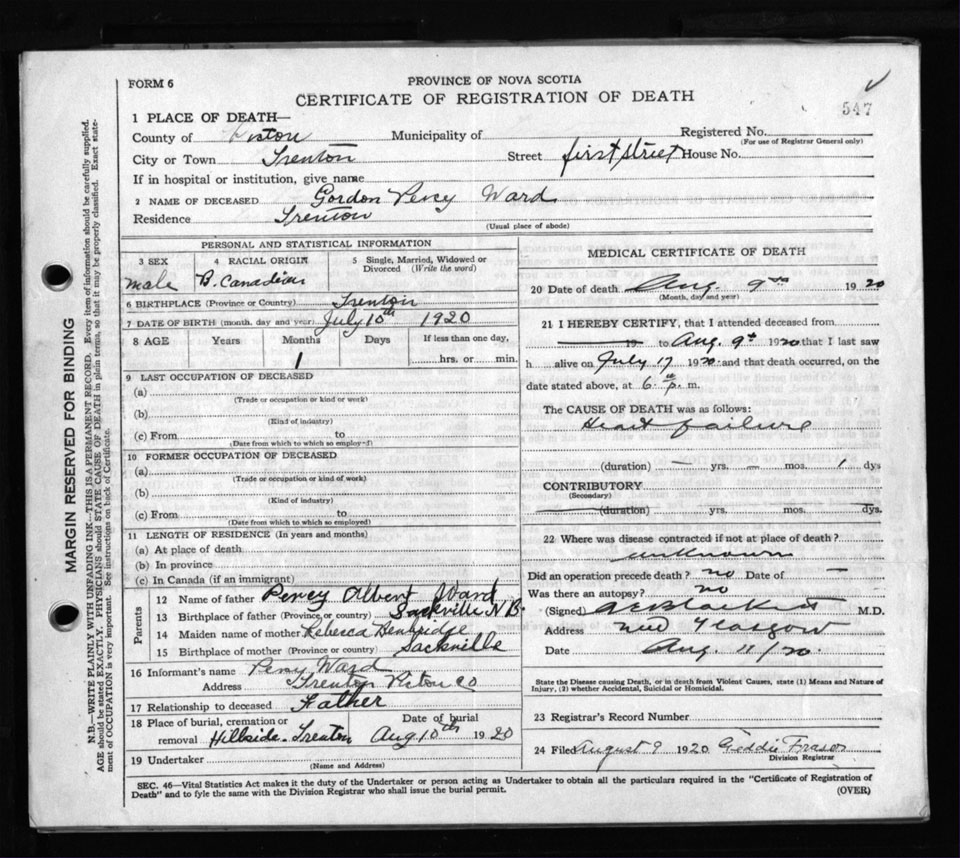 FORM 6
PROVINCE OF NOVA SCOTIA
CERTIFICATE OF REGISTRATION OF DEATH
547
1 PLACE OF DEATH—
County of Pictou Municipality of Registered No.
(For use of Registrar General only)
City or Town Trenton Street first street House No.
If in hospital or institution, give name
2 NAME OF DECEASED Gordon Percy Ward
Residence Trenton
(Usual place of abode)
PERSONAL AND STATISTICAL INFORMATION
3 SEX male
4 RACIAL ORIGIN B. Canadian
5 Single, Married, Widowed or Divorced (Write the word)
6 BIRTHPLACE (Province or Country) Trenton
7 DATE OF BIRTH (month, day and year) July 10th 1920
8 AGE Years Months Days If less than one day,
1 hrs. or min.
9 LAST OCCUPATION OF DECEASED
(a)
(Trade or occupation or kind or work)
(b)
(Kind of industry)
(c) From to
(Date from which to which so employed)
10 FORMER OCCUPATION OF DECEASED
(a)
(Trade or occupation or kind of work)
(b)
(Kind of industry)
(c) From to
(Date from which to which so employed)
11 LENGTH OF RESIDENCE (In years and months)
(a) At place of death
(b) In province
(c) In Canada (if an immigrant)
Parents
12 Name of father Percy Albert Ward
13 Birthplace of father (Province or country) Sackville N.B.
14 Maiden name of mother Rebecca
15 Birthplace of mother (Province or country) Sackville
16 Informant's name Percy Ward
Address Trenton Pictou Co
17 Relationship to deceased Father
18 Place of burial, cremation or removal Hillside - Trenton Date of burial Aug 10th 1920
19 Undertaker
(Name and Address)
MEDICAL CERTIFICATE OF DEATH
20 Date of death Aug. 9th 1920
(Month, day and year)
21 I HEREBY CERTIFY, that I attended deceased from
19 to Aug. 9th 1920 that I last saw
h alive on July 17 1920 and that death occurred, on the
date stated above, at 6 p. m.
The CAUSE OF DEATH was as follows:
Heart failure
(duration) — yrs. — mos. 1 dys
CONTRIBUTORY
(Secondary)
(duration) yrs. mos. dys.
22 Where was disease contracted if not at place of death?
unknown
Did an operation precede death? no Date of —
Was there an autopsy? no
(Signed) M.D.
Address New Glasgow
Date Aug. 11/20.
State the Disease causing Death, or in death from Violent Causes, state (1) Means and Nature of
Injury, (2) whether Accidental, Suicidal or Homicidal.
23 Registrar's Record Number
24 Filed August 9 1920 Geddie Fraser
Division Registrar
SEC. 46—Vital Statistics Act makes it the duty of the Undertaker or person acting as Undertaker to obtain all the particulars required in the "Certificate of Registration of
Death" and to fyle the same with the Division Registrar who shall issue the burial permit.
(OVER)
MARGIN RESERVED FOR BINDING
N.B.—WRITE PLAINLY WITH UNFADING INK—THIS IS A PERMANENT RECORD. Every item of information should be carefully supplied.
AGE should be stated EXACTLY. PHYSICIANS should STATE CAUSE OF DEATH in plain terms, so that it may be properly classified. Exact state-
ment of OCCUPATION is very important. See instructions on back of Certificate.